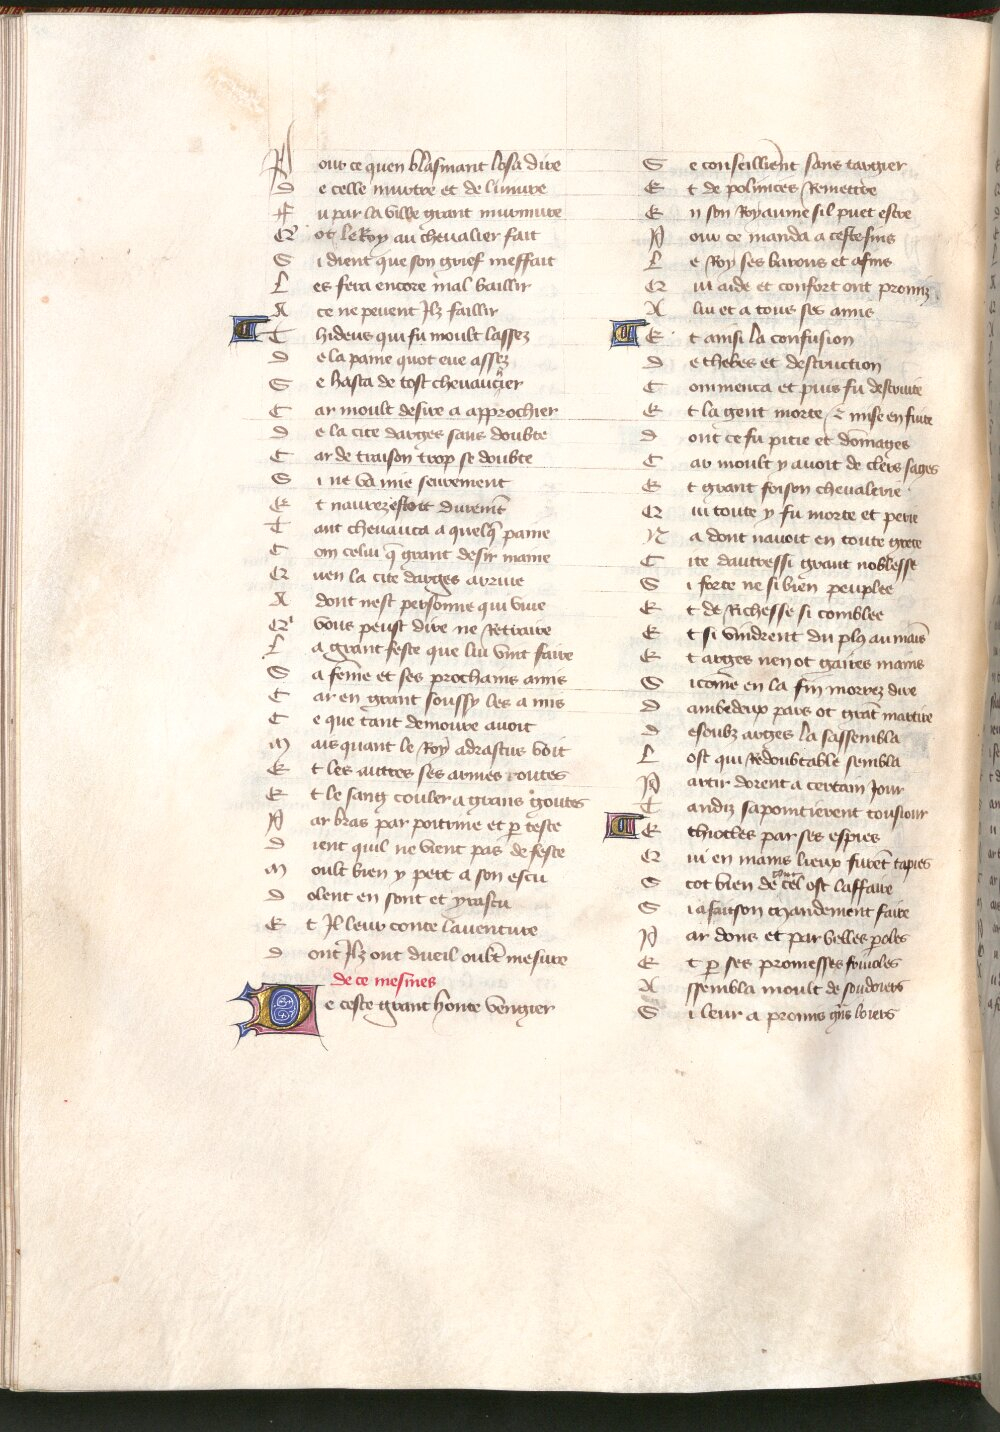 Pour ce quen blasmant losa dire
De celle murtre et de liniure
Fu par la ville grant murmure
Qot le Roy au cheualier fait
Si dient que son grief meffait
Les fera encore mal baillir
A ce ne peuent Jlz faillir
Thideus qui fu moult lassez
De la paine quot eue assez
Se hasta de tost cheuauchier
Car moult desire a approchier
De la cite darges sans doubte
Car de traison trop se doubte
Si ne va mie seurement
Et naurez estoit duremēt
Tant cheuauca a quelq̄ paine
Com celui q̄ grant desir maine
Quen la cite darges arriue
A dont nest personne qui viue
Qui vous peust dire ne Retraire
La grant feste que lui vint faire
Sa fēme et ses prochains amis
Car en grant soussy les a mis
Ce que tant demoure auoit
Mais quant le Roy adrastus voit
Et les autres ses armes routes
Et le sang couler a grans goutes
Par bras par poitrine et p̄ teste
Dient quil ne vient pas de feste
Moult bien y pert a son escu
Dolent en sont et yrascu
Et Jl leur conte lauenture
Dont Jlz ont dueil oultr̄ mesure
de ce mesmes
De ceste grant honte vengier
Se conseillierent sans targier
Et de polinices Remettre
En son Royaume sil puet estre
Pour ce manda a ceste fins
Le Roy ses barons et afins
Qui aide et confort ont promiz
A lui et a tous ses amis
Et ainsi la confusion
De thebes et destruction
Commenca et puis fu destruite
Et la gent morte & mise en fuite
Dont ce fu pitie et dōmages
Car moult y auoit de clers sages
Et grant foison cheualerie
Qui toute y fu morte et perie
Na dont nauoit en toute grece
Cite dautressi grant noblesse
Si forte ne si bien peuplee
Et de Richesse si comblee
Et si vindrent du pl9 au mais
Et arges nen ot gaires mains
Si cōme en la fin morrez dire
Dambedeux pars ot grāt martire
Desoubz arges la sassembla
Lost qui Redoubtable sembla
Partir dorent a certain Jour
Tandiz sapointierent tousiour
Ethiocles par ses espies
Qui en mains lieux furēt tapies
Scot bien de cel ost laffaire
Si a fait son mandement faire
Par dons et par belles p̄oles
Et p̄ ses promesses friuoles
Assembla moult de soudoiers
Si leur a promis grās loiers